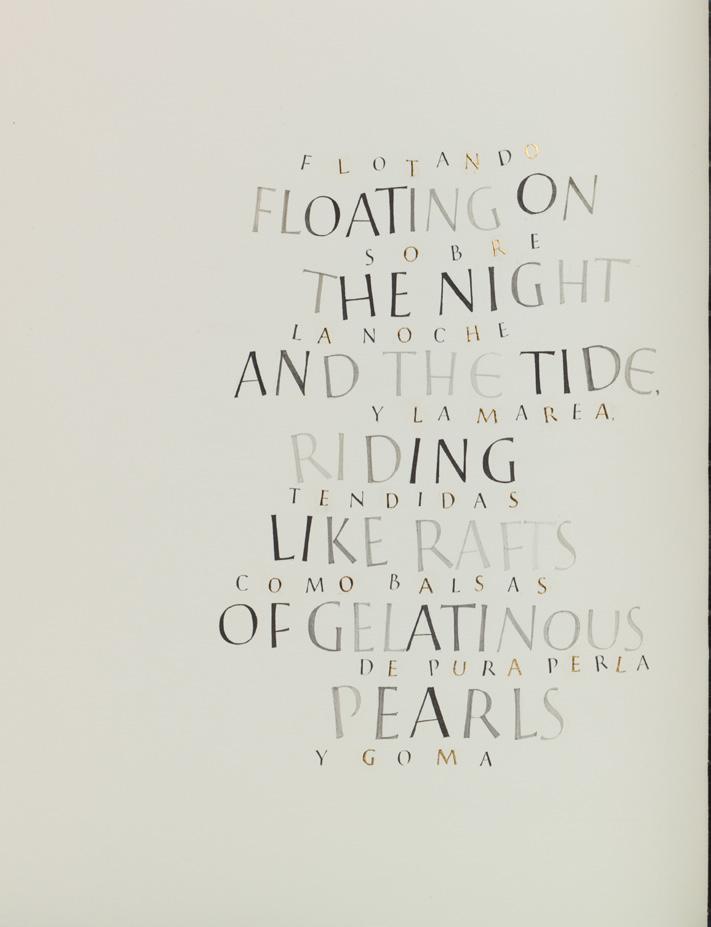 FLOTANDO
FLOATING ON
SOBRE
THE NIGHT
LA NOCHE
AND THE TIDE,
Y LA MAREA,
RIDING
TENDIDAS
LIKE RAFTS
COMO BALSAS
OF GELATINOUS
DE PURA PERLA
PEARLS
Y GOMA